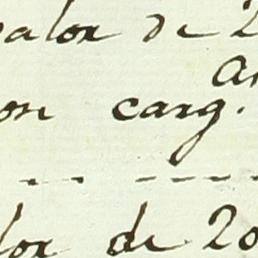 valor de 2
on carg.
lor de 20